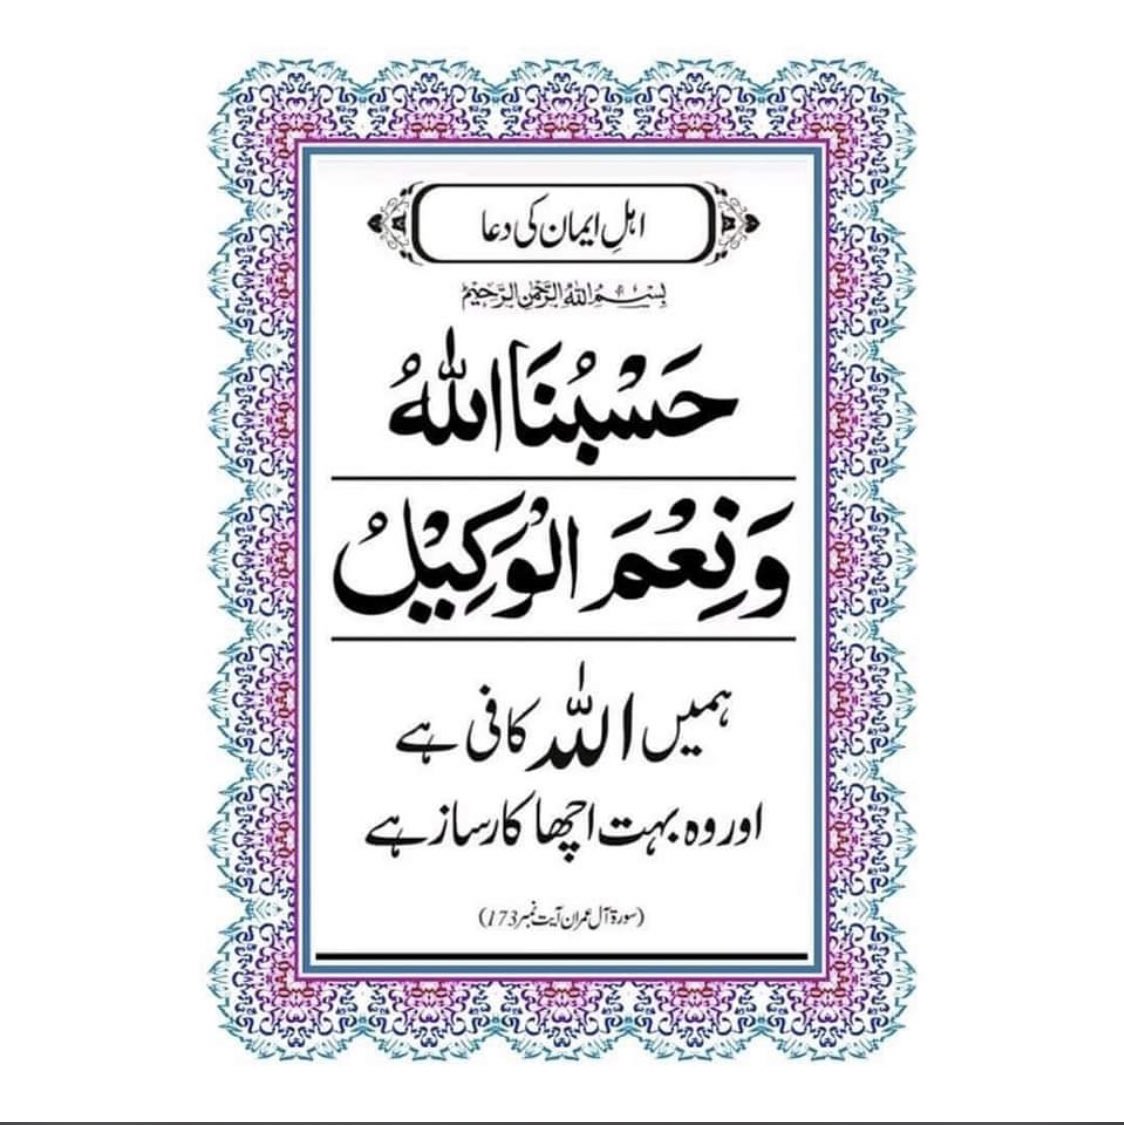 اہلِ ایمان کی دعا
بِسْمِ اللّٰهِ الرَّحْمٰنِ الرَّحِيْمِ
حَسْبُنَا اللّٰهُ
وَنِعْمَ الْوَكِيْلُ
ہمیں اللہ کافی ہے
اور وہ بہت اچھا کارساز ہے
(سورۃ آل عمران آیت نمبر 173)